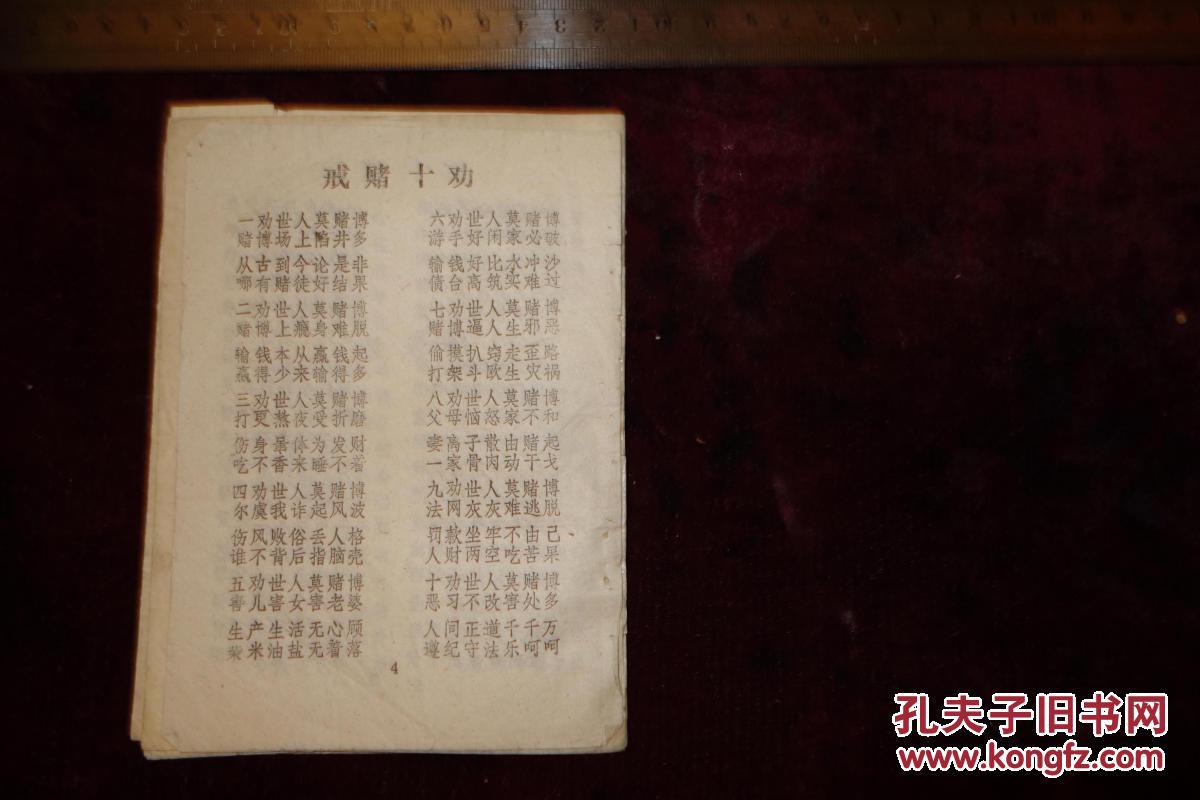 戒赌十劝
一劝世人莫赌博
赌博场上陷井多
从古到今论是非
哪有赌徒好结果
二劝世人莫赌博
赌博上瘾身难脱
输钱本从赢钱起
赢得少来输得多
三劝世人莫赌博
打更熬夜受折磨
伤身暴体为发财
吃不香来睡不着
四劝世人莫赌博
尔虞我诈起风波
伤风败俗丢人格
谁不背后指脑壳
五劝世人莫赌博
害儿害女害老婆
生产生活无心顾
米油盐无着落
六劝世人莫赌博
游手好闲家必破
输钱好比水冲沙
债台高筑实难过
七劝世人莫赌博
赌博逼人生邪恶
偷摸扒窃走歪路
打架斗欧生灾祸
八劝世人莫赌博
父母恼怒家不和
妻离子散由赌起
一家骨肉动干戈
九劝世人莫赌博
法网灰灰难逃脱
罚款坐牢不由己
人财两空吃苦果
十劝世人莫赌博
恶习不改害处多
人间正道千千万
遵纪守法乐呵呵
4
孔夫子旧书网
www.kongfz.com